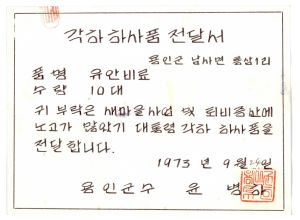 각하 하사품 전달서
용인군 남사면 통삼1리
품 명 유안비료
수 량 10대
귀 부락은 새마을사업 및 퇴비증산에
노고가 많았기 대통령 각하 하사품을
전달합니다.
1973 년 9월 24일
용인군수 윤 병